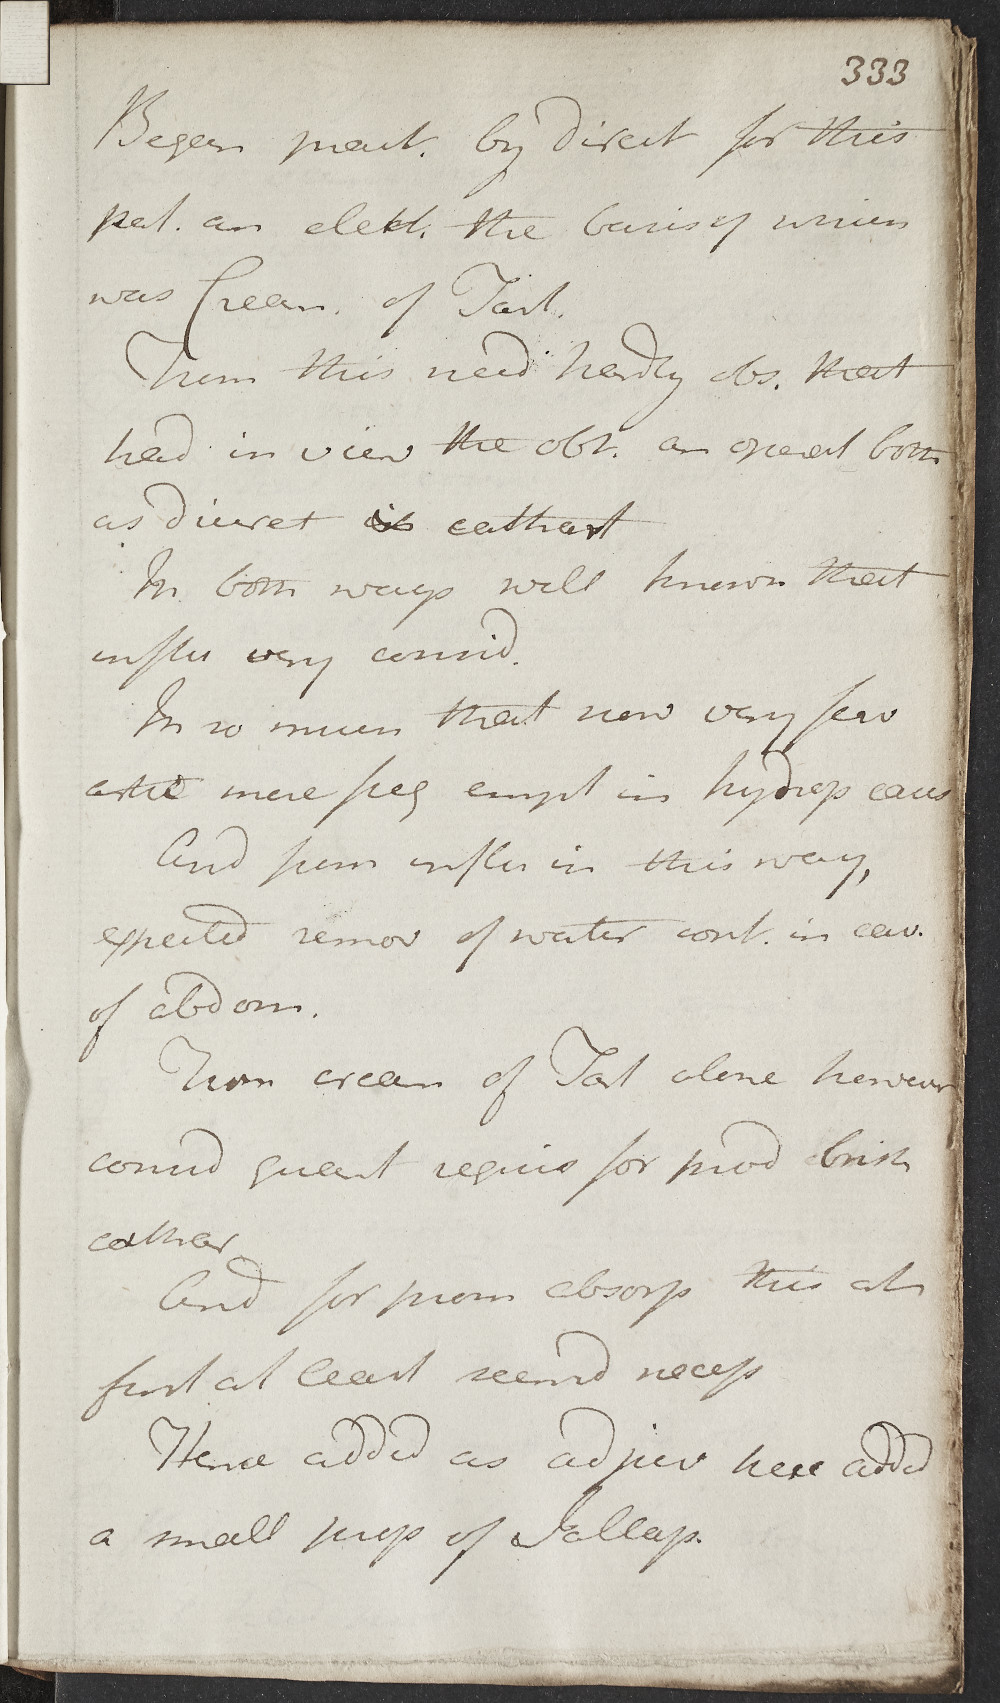 333
Began pract. by direct for this
pat. an elect. the basis of which
was Cream. of Tart.
From this need hardly obs. that
had in view the obt. an operat both
as diuret & cathart
In both ways well known that
influ very consid.
In so much that now very few
artic more freq empl in hydrop cases
And from influ in this way,
expected remov of water cont. in cav.
of abdom.
From cream of Tart alone however
consid quant requis for prod brisk
cathar
And for prom absorp this at
first at least seemd necess
Hence added as adjuv here added
a small prop of Jallap.